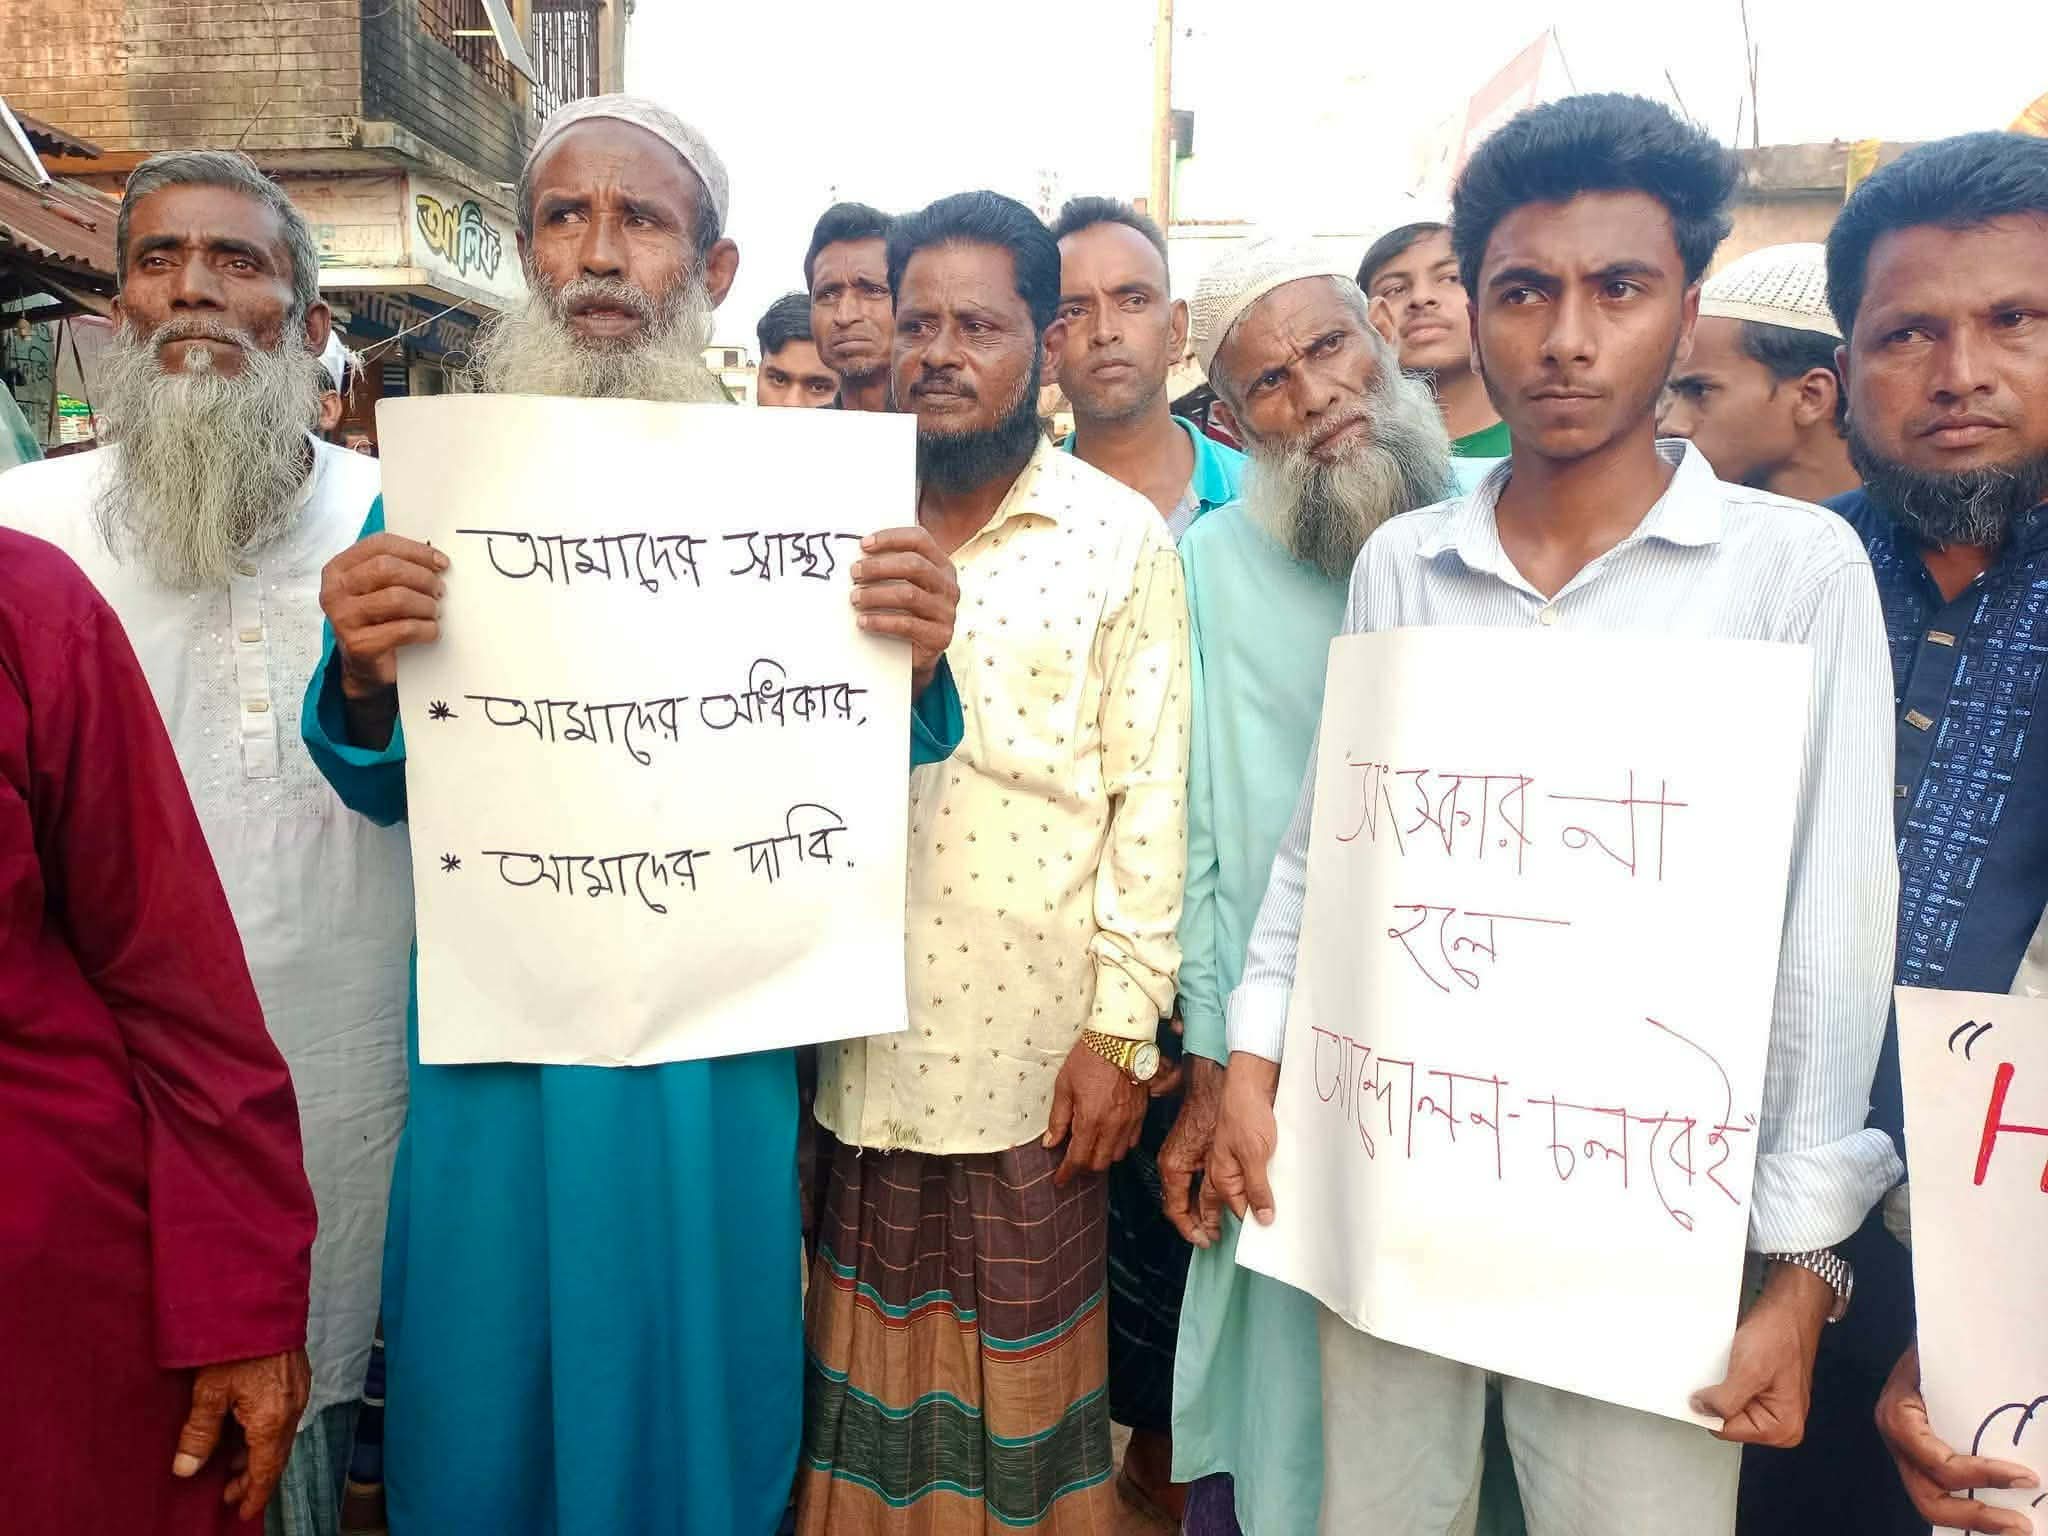 আলিফ
আমাদের স্বাস্থ্য
* আমাদের অধিকার,
* আমাদের দাবি..
"সংস্কার না
হলে
আন্দোলন-চলবেই"
"H